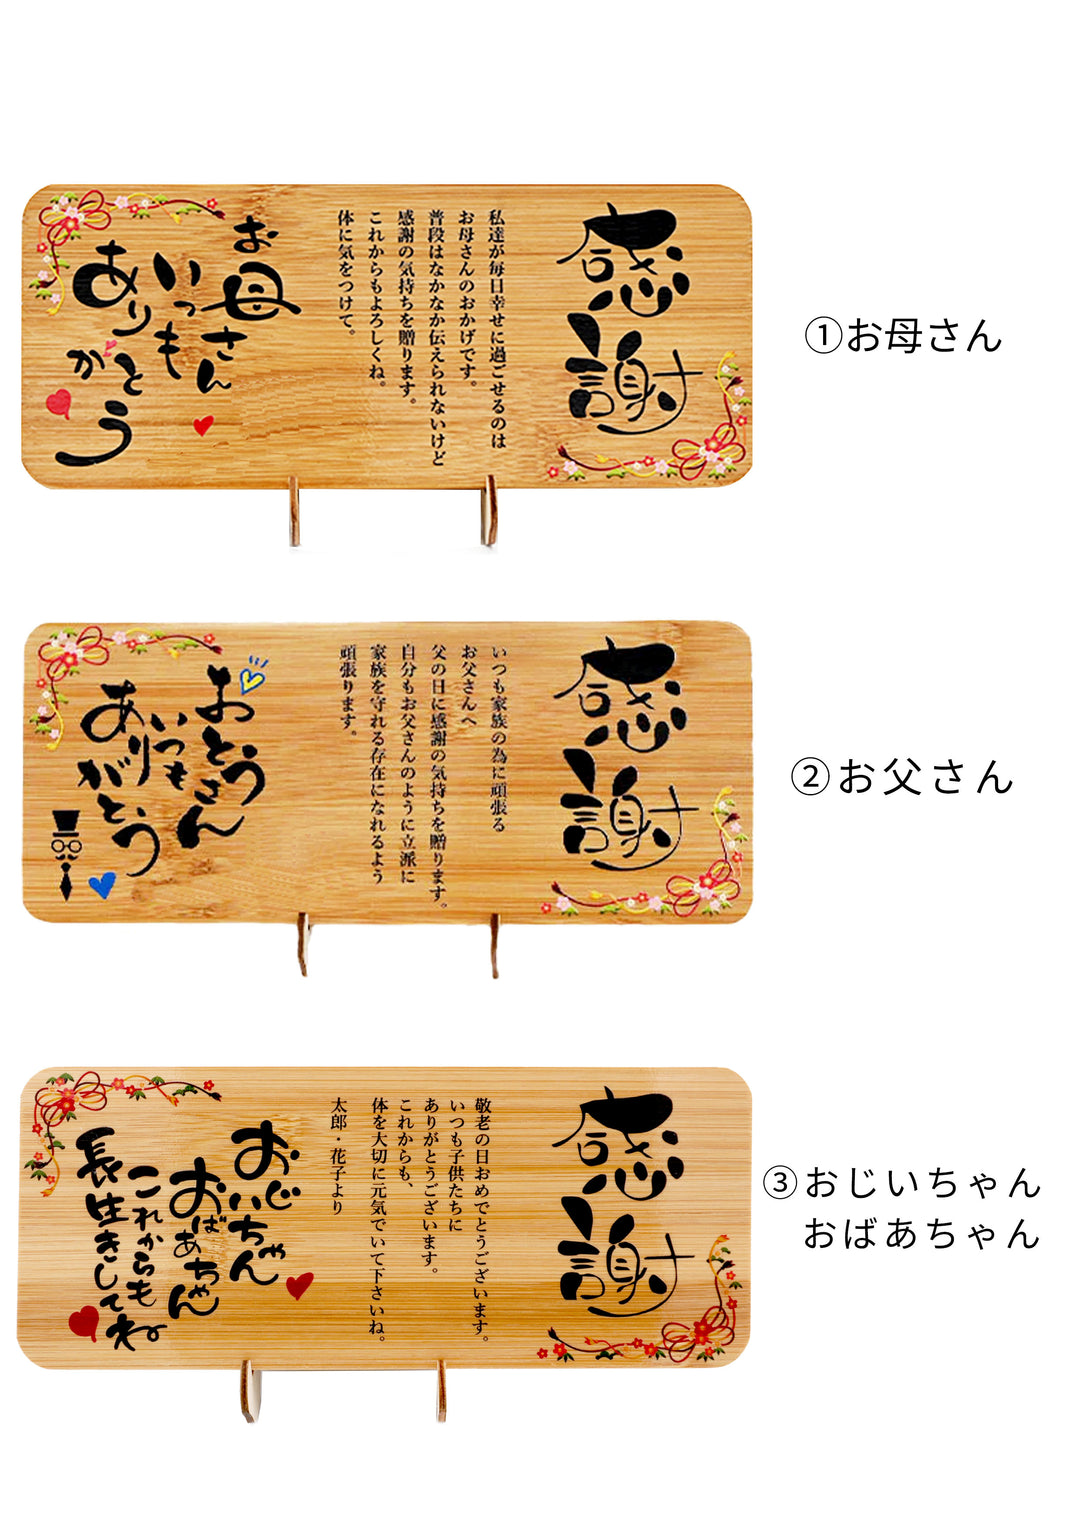 感謝
私達が毎日幸せに過ごせるのは
お母さんのおかげです。
普段はなかなか伝えられないけど
感謝の気持ちを贈ります。
これからもよろしくね。
体に気をつけて。
お母さん
いつも
ありがとう
①お母さん
感謝
いつも家族の為に頑張る
お父さんへ
父の日に感謝の気持ちを贈ります。
自分もお父さんのように立派に
家族を守れる存在になれるよう
頑張ります。
おとうさん
いつも
ありがとう
②お父さん
感謝
敬老の日おめでとうございます。
いつも子供たちに
ありがとうございます。
これからも、
体を大切に元気でいて下さいね。
太郎・花子より
おじいちゃん
おばあちゃん
これからも
長生きしてね
③おじいちゃん
おばあちゃん